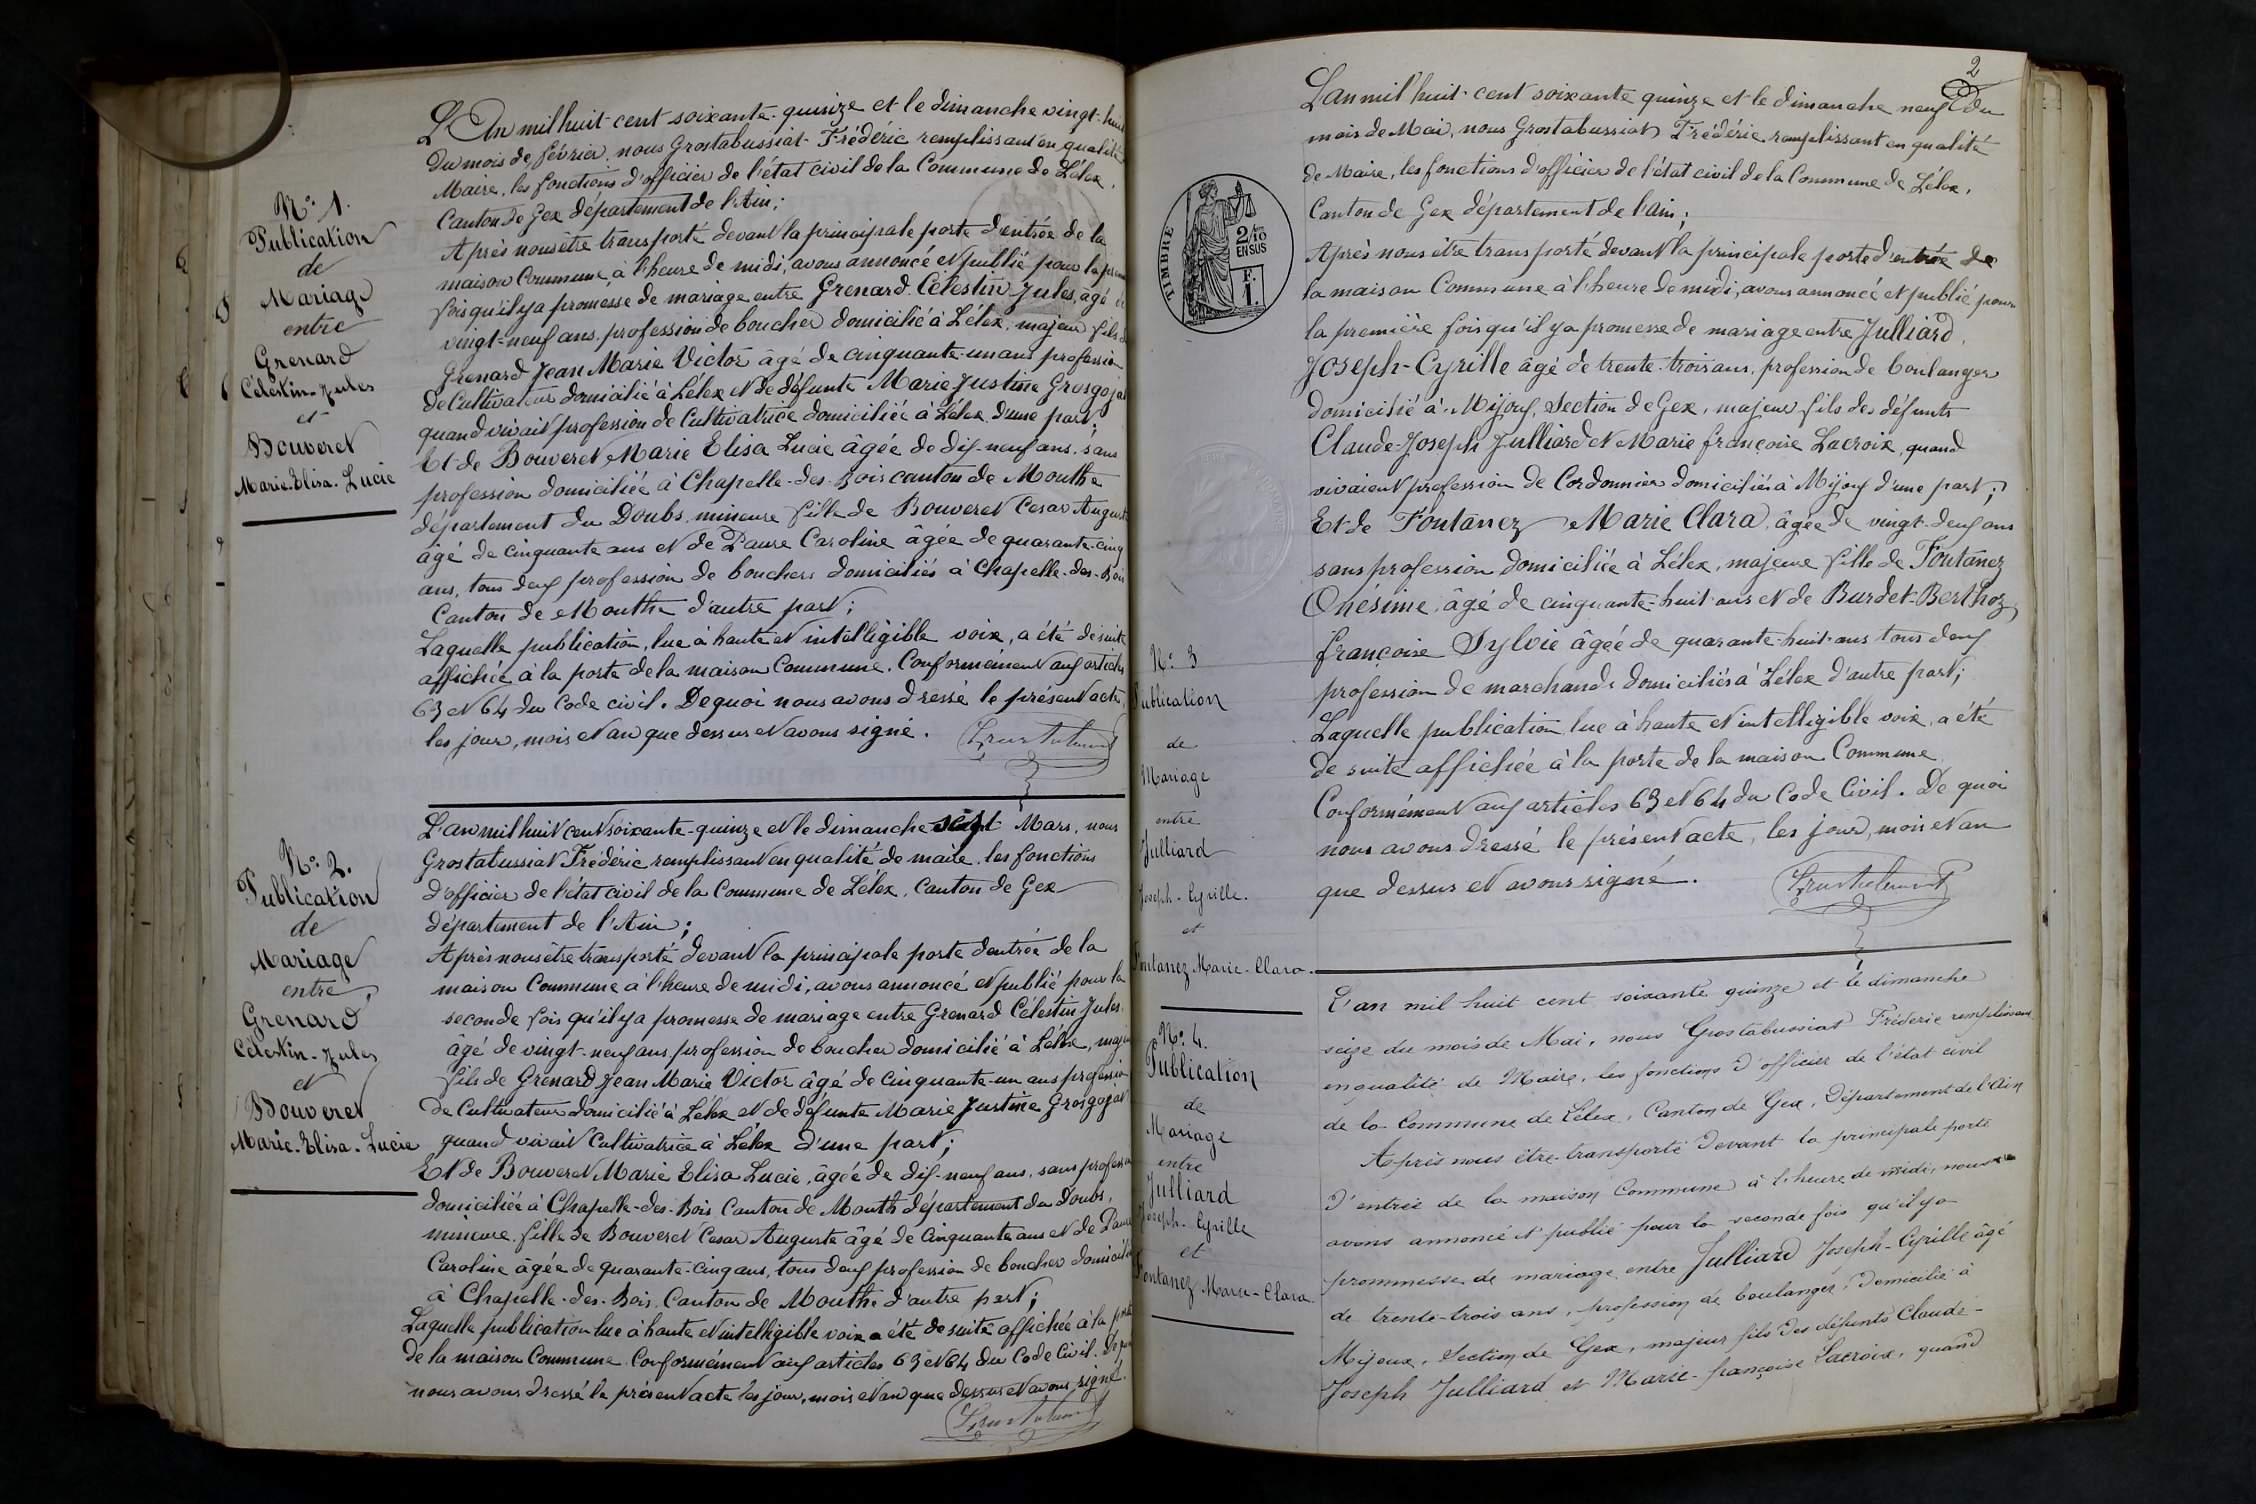 N.° 1.
Publication
de
Mariage
entre
Grenard
Célestin-Jules
et
Bouveret
Marie-Elisa-Lucie
L'An mil huit cent soixante-quinze et le dimanche vingt-huit
du mois de février, nous Grostabussiat Frédéric remplissant en qualité
Maire, les fonctions d'officier de l'état civil de la Commune de Lélex,
Canton de Gex département de l'Ain;
Après nous être transporté devant la principale porte d'entrée de la
maison Commune, à l'heure de midi, avons annoncé et publié pour la
fois qu'il y a promesse de mariage entre Grenard Célestin Jules, âgé de
vingt-neuf ans, profession de boucher domicilié à Lélex, majeur fils
Grenard Jean Marie Victor âgé de cinquante-un ans profession
de Cultivateur domicilié à Lélex et de défunte Marie Justine Grosgojat
quand vivait profession de Cultivatrice domiciliée à Lélex d'une part;
Et de Bouveret Marie Elisa Lucie âgée de dix-neuf ans, sans
profession domiciliée à Chapelle-des-Bois canton de Mouthe
département du Doubs, mineure fille de Bouveret Cesar Auguste
âgé de cinquante ans et de Paure Caroline âgée de quarante-cinq
ans, tous deux profession de bouchers domiciliés à Chapelle-des-Bois
Canton de Mouthe d'autre part;
Laquelle publication, lue à haute et intelligible voix, a été de suite
affichée à la porte de la maison Commune. Conformément aux articles
63 et 64 du Code civil. De quoi nous avons dressé le présent acte,
les jour, mois et an que dessus et avons signé.
N.° 2.
Publication
de
Mariage
entre
Grenard
Célestin-Jules
et
Bouveret
Marie-Elisa-Lucie
L'an mil huit cent soixante-quinze et le dimanche sept Mars, nous
Grostabussiat Frédéric remplissant en qualité de maire, les fonctions
d'officier de l'état civil de la Commune de Lélex, Canton de Gex
département de l'Ain;
Après nous être transporté devant la principale porte d'entrée de la
maison Commune à l'heure de midi, avons annoncé et publié pour la
seconde fois qu'il y a promesse de mariage entre Grenard Célestin Jules,
âgé de vingt-neuf ans, profession de boucher domicilié à Lélex, majeur
fils de Grenard Jean Marie Victor âgé de cinquante-un ans profession
de Cultivateur domicilié à Lélex et de défunte Marie Justine Grosgojat
quand vivait Cultivatrice à Lélex d'une part;
Et de Bouveret Marie Elisa Lucie, âgée de dix-neuf ans, sans profession
domiciliée à Chapelle-des-Bois Canton de Mouth département du Doubs,
mineure fille de Bouveret Cesar Auguste âgé de Cinquante ans et de Paure
Caroline âgée de quarante-cinq ans, tous deux profession de boucher domiciliés
à Chapelle-des-Bois, Canton de Mouthe d'autre part;
Laquelle publication lue à haute et intelligible voix a été de suite affichée à la porte
de la maison Commune. Conformément aux articles 63 et 64 du Code Civil. De quoi
nous avons dressé le présent acte les jour, mois et an que dessus et avons signé.
2
TIMBRE
2/10
EN SUS
F.
1.
L'an mil huit-cent soixante quinze et le dimanche neuf du
mois de Mai, nous Grostabussiat Frédéric remplissant en qualité
de Maire, les fonctions d'officier de l'état civil de la Commune de Lélex,
Canton de Gex département de l'ain;
Après nous être transporté devant la principale porte d'entrée de
la maison Commune à l'heure de midi, avons annoncé et publié pour
la première fois qu'il y a promesse de mariage entre Julliard,
Joseph-Cyrille âgé de trente-trois ans, profession de boulanger
domicilié à Mijoux, Section de Gex, majeur fils des défunts
Claude-Joseph Julliard et Marie françoise Lacroix, quand
vivaient profession de Cordonnier domiciliés à Mijoux d'une part;
Et de Fontanez Marie Clara, âgée de vingt-deux ans
sans profession domiciliée à Lélex, majeure fille de Fontanez
Onesime, âgé de cinquante-huit ans et de Burdet-Berthoz,
françoise Sylvie âgée de quarante-huit-ans tous deux
profession de marchands domiciliés à Lélex d'autre part;
Laquelle publication lue à haute et intelligible voix, a été
de suite affichée à la porte de la maison Commune
Conformément aux articles 63 et 64 du Code Civil. De quoi
nous avons dressé le présent acte, les jour, mois et an
que dessus et avons signé.
N.° 3
Publication
de
Mariage
entre
Julliard
Joseph-Cyrille.
et
Fontanez Marie-Clara.
N.° 4.
Publication
de
Mariage
entre
Julliard
Joseph-Cyrille
et
Fontanez Marie-Clara.
L'an mil huit cent soixante quinze et le dimanche
seize du mois de Mai, nous Grostabussiat Fréderic remplissant
en qualité de Maire, les fonctions d'officier de l'état civil
de la Commune de Lélex, Canton de Gex, Département de l'Ain
Après nous être transporté devant la principale porte
d'entrée de la maison Commune à l'heure de midi, nous
avons annoncé et publié pour la seconde fois qu'il y a
prommesse de mariage entre Julliard Joseph-Cyrille âgé
de trente-trois ans, profession de boulanger, Domicilié à
Mijoux, Section de Gex, majeur fils des défunts Claude-
Joseph Julliard et Marie-françoise Lacroix, quand